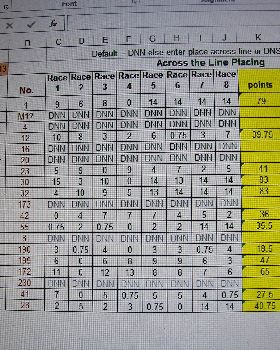 Default DNN else enter place across line or DNS
Across the Line Placing
Race Race Race Race Race Race Race Race
No. 1 2 3 4 5 6 7 8 points
1 9 6 8 0 14 14 14 14 79
DNN DNN DNN DNN DNN DNN DNN DNN
4 DNN DNN DNN DNN DNN DNN DNN DNN
12 10 8 3 2 6 0.75 3 7 39.75
16 DNN DNN DNN DNN DNN DNN DNN DNN
20 DNN DNN DNN DNN DNN DNN DNN DNN
23 5 9 0 9 4 7 2 5 41
30 15 3 10 0 14 13 14 14 83
32 4 10 9 5 13 14 14 14 83
173 DNN DNN DNN DNN DNN DNN DNN DNN
42 0 4 7 7 7 4 5 2 36
55 0.75 2 0.75 0 2 2 14 14 35.5
DNN DNN DNN DNN DNN DNN DNN DNN
190 3 0.75 4 0 3 3 0.75 4 18.5
199 6 0 6 8 9 9 6 3 47
172 11 0 12 13 8 8 7 6 65
230 DNN DNN DNN DNN DNN DNN DNN DNN
41 7 0 5 0.75 5 5 4 0.75 27.5
26 2 5 2 3 0.75 0 14 14 40.75